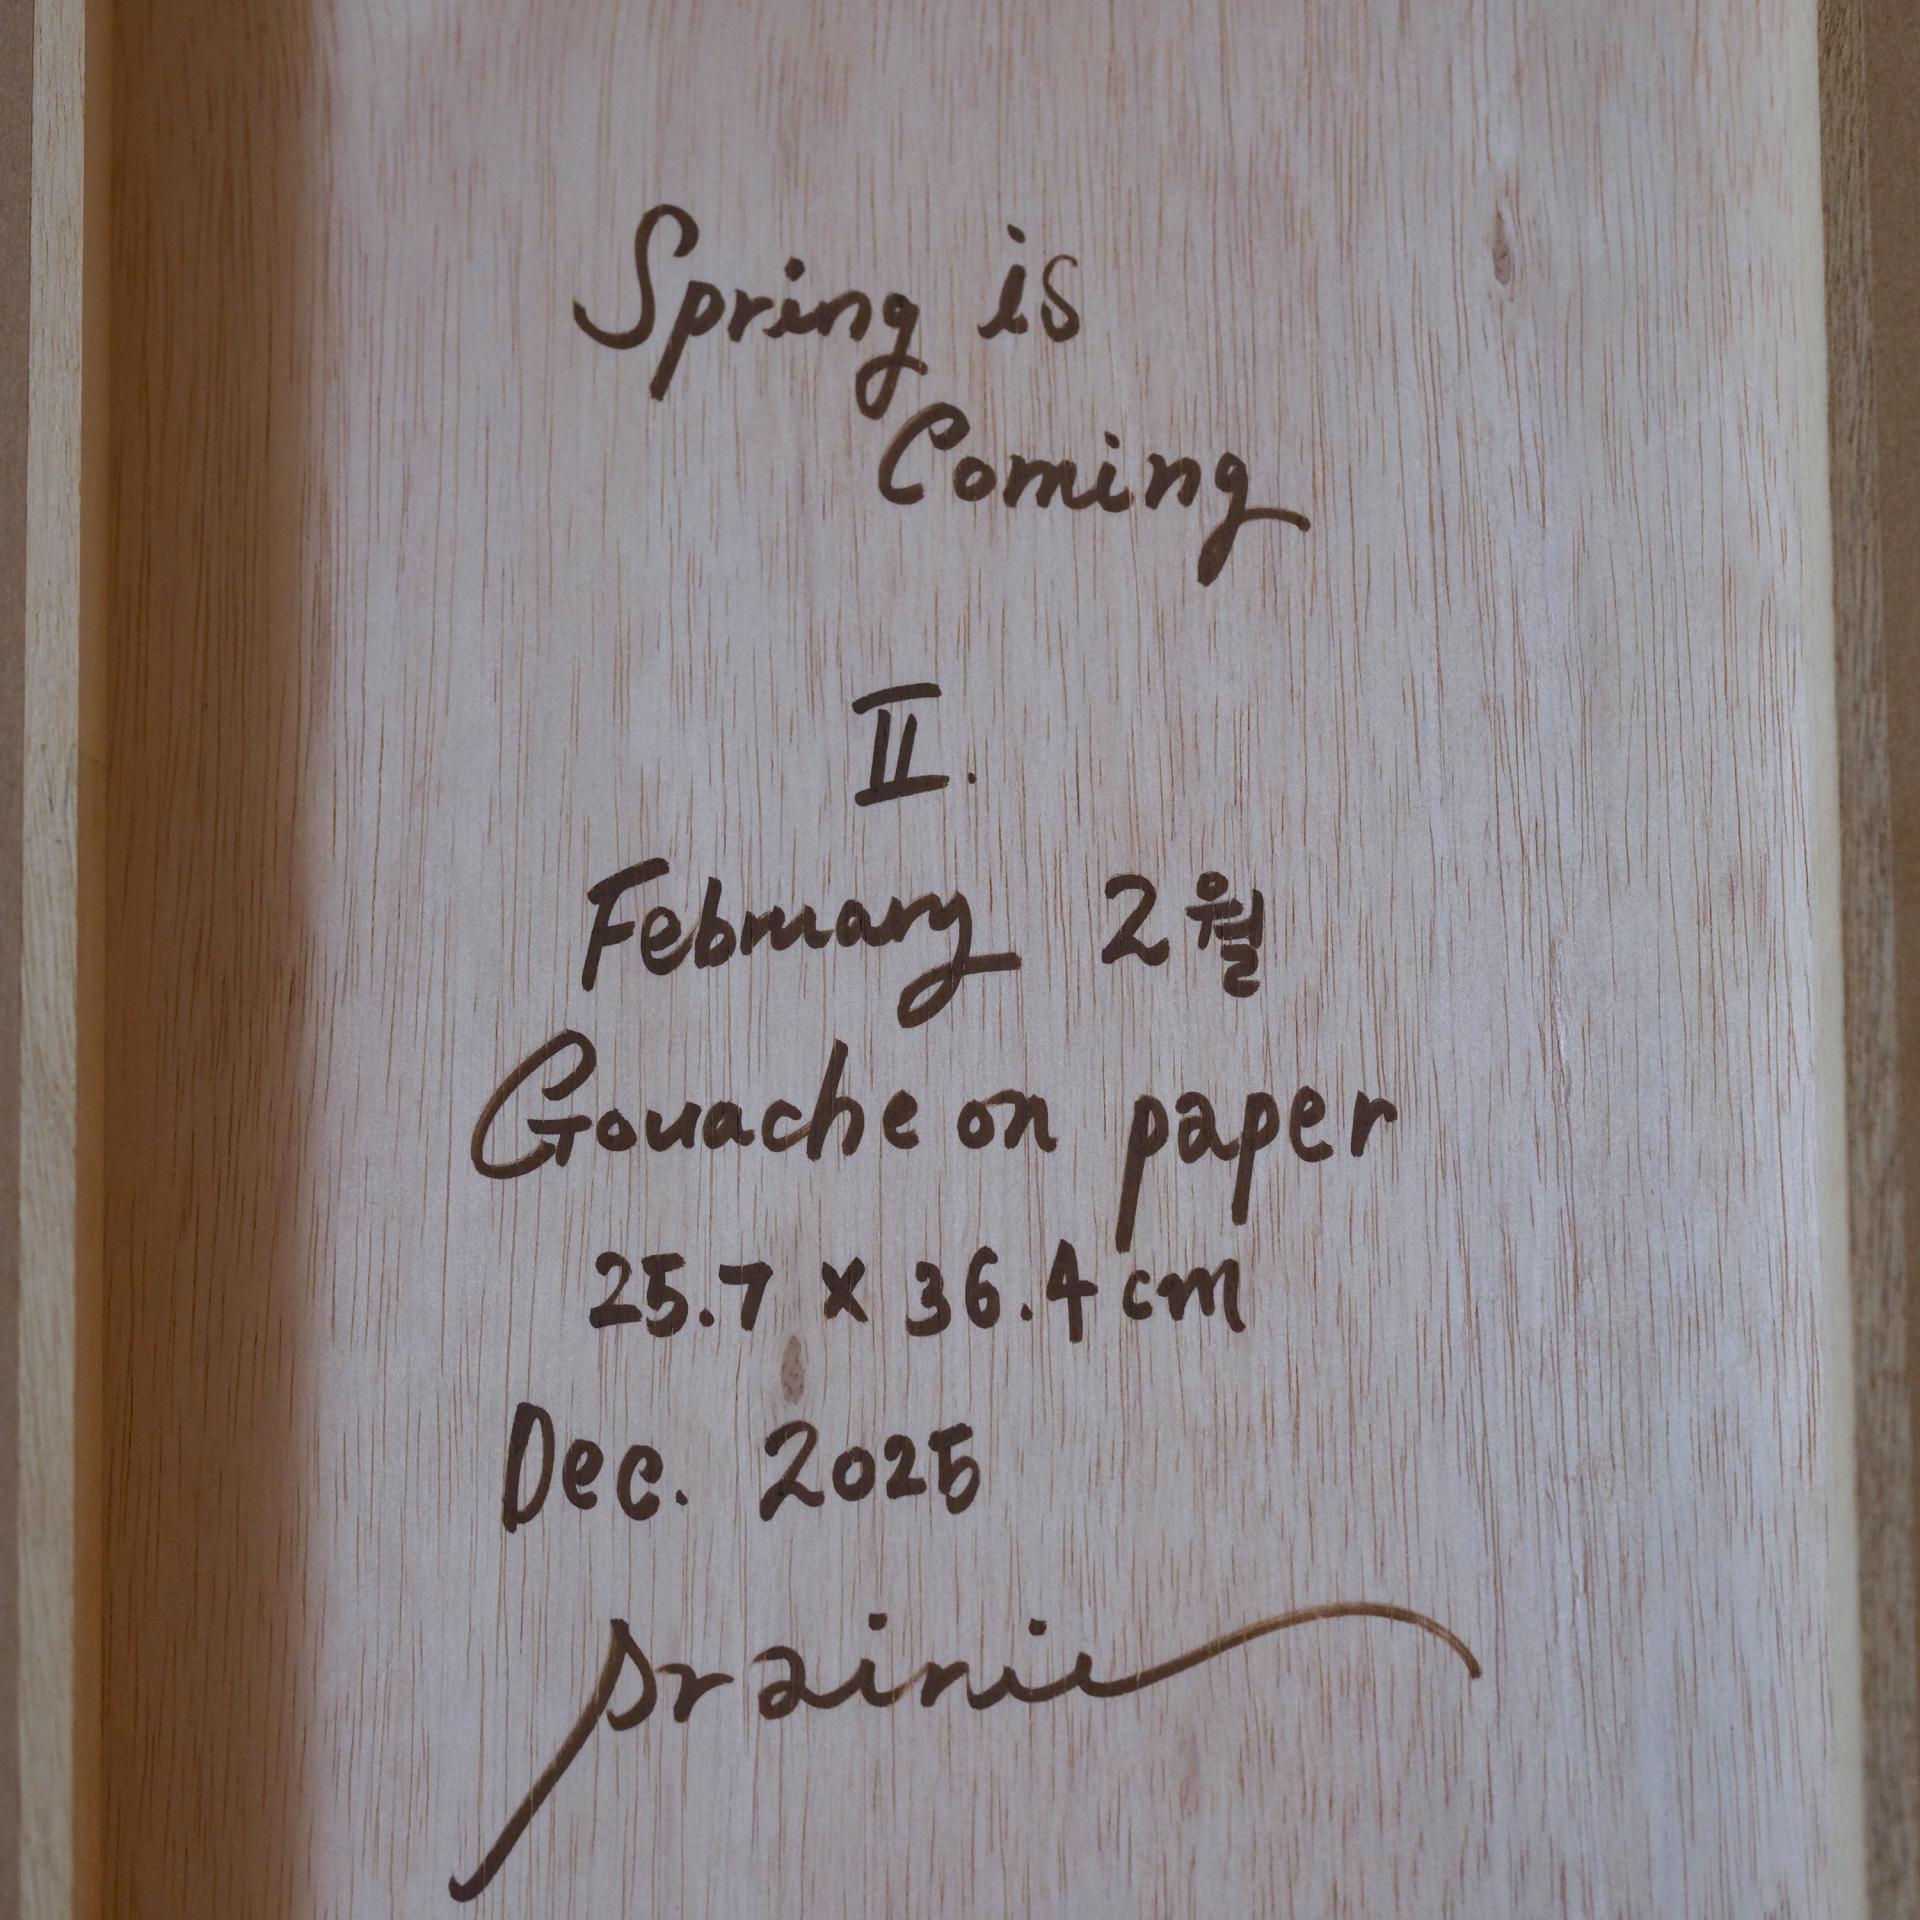 Spring is
Coming
II.
February 2월
Gouache on paper
25.7 x 36.4 cm
Dec. 2025
prairie